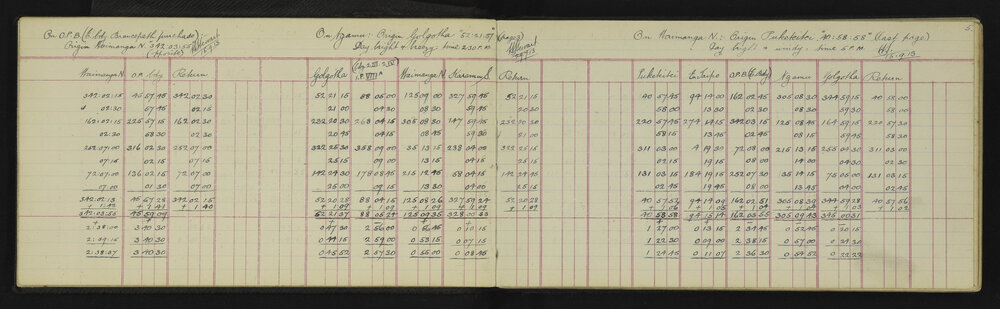 On O.P.B (E. bdy Brancepeth purchase):
Origin Waimanga N. 342:03:55
15.9.13
Waimanga N. O.P. bdy Return
342:02:15 45 57 45 342 02 30
02:30 57 45 02 15
162:02:15 225 57 15 162 02 30
02:30 58 30 02 30
252:07:00 316 02 30 252 07 00
07:15 02 30 07 15
72:07:00 136 02 15 72 07 00
07:00 01 30 07 00
342:02:13 45 57 28 342 02 15
+ 1:42 + 1 41 + 1 40
342:03:55 45 59 09
2:38:00 3 40 30
2:39:15 3 40 30
2:38:37 3 40 30
On Ngamu: Origin Golgotha "52:21:37" (page 2)
Day bright & breezy: time 2.30 P.M.
Golgotha Waimanga N Karamu S. Return
52 21 15 88 05 00 125 09 00 327 59 45 52 21 15
21 00 04 30 08 30 59 30 20 30
232 20 30 268 04 15 305 08 30 147 59 45 232 20 30
20 45 04 15 08 45 59 30 21 00
322 25 30 358 09 00 35 13 15 238 04 00 322 25 15
25 15 09 00 13 15 04 30 25 15
142 24 30 178 08 45 215 12 45 58 04 15 142 24 45
25 00 09 15 13 30 04 00 25 15
52 20 28 88 04 15 125 08 26 327 59 24 52 20 28
+ 1 09 + 1 09 + 1 09 + 1 09
52 21 37 88 05 24 125 09 35 328 00 33
0 47 30 2 56 00 0 10 15
0 44 15 2 59 00 0 53 15 0 07 15
0 45 52 2 57 30 0 55 00 0 08 45
5.
On Waimanga N.: Origin Pukeketei "40:58:58" (last page)
Day bright & windy: time 5 P.M.
15.9.13
Pukeketei E. Taipo O.P.B (E. Bdy) Ngamu Golgotha Return
40 57 45 94 14 00 162 02 45 305 08 30 344 59 15 40 58 00
58 00 13 30 02 30 08 30 59 00 57 30
220 57 45 274 14 15 342 03 15 125 08 45 164 59 15 220 57 30
58 15 13 45 02 45 08 15 59 45 58 30
311 03 00 4 19 30 72 08 00 215 13 15 255 04 30 311 03 00
02 15 19 15 08 00 14 00 04 30 02 30
131 03 15 184 19 15 252 07 30 35 14 15 75 05 00 131 03 15
02 45 19 45 08 00 13 45 04 00 02 45
40 57 52 94 14 09 162 02 51 305 08 39 344 59 28 40 57 56
+ 1 06 + 1 05 + 1 04 + 1 04 + 1 03 + 1 02
40 58 58 94 15 14 162 03 55 305 09 43 345 00 31
1 27 00 0 13 15 2 34 45 0 52 45 0 20 15
1 22 30 0 09 00 2 38 15 0 57 00 0 24 30
1 24 45 0 11 07 2 36 30 0 54 52 0 22 22